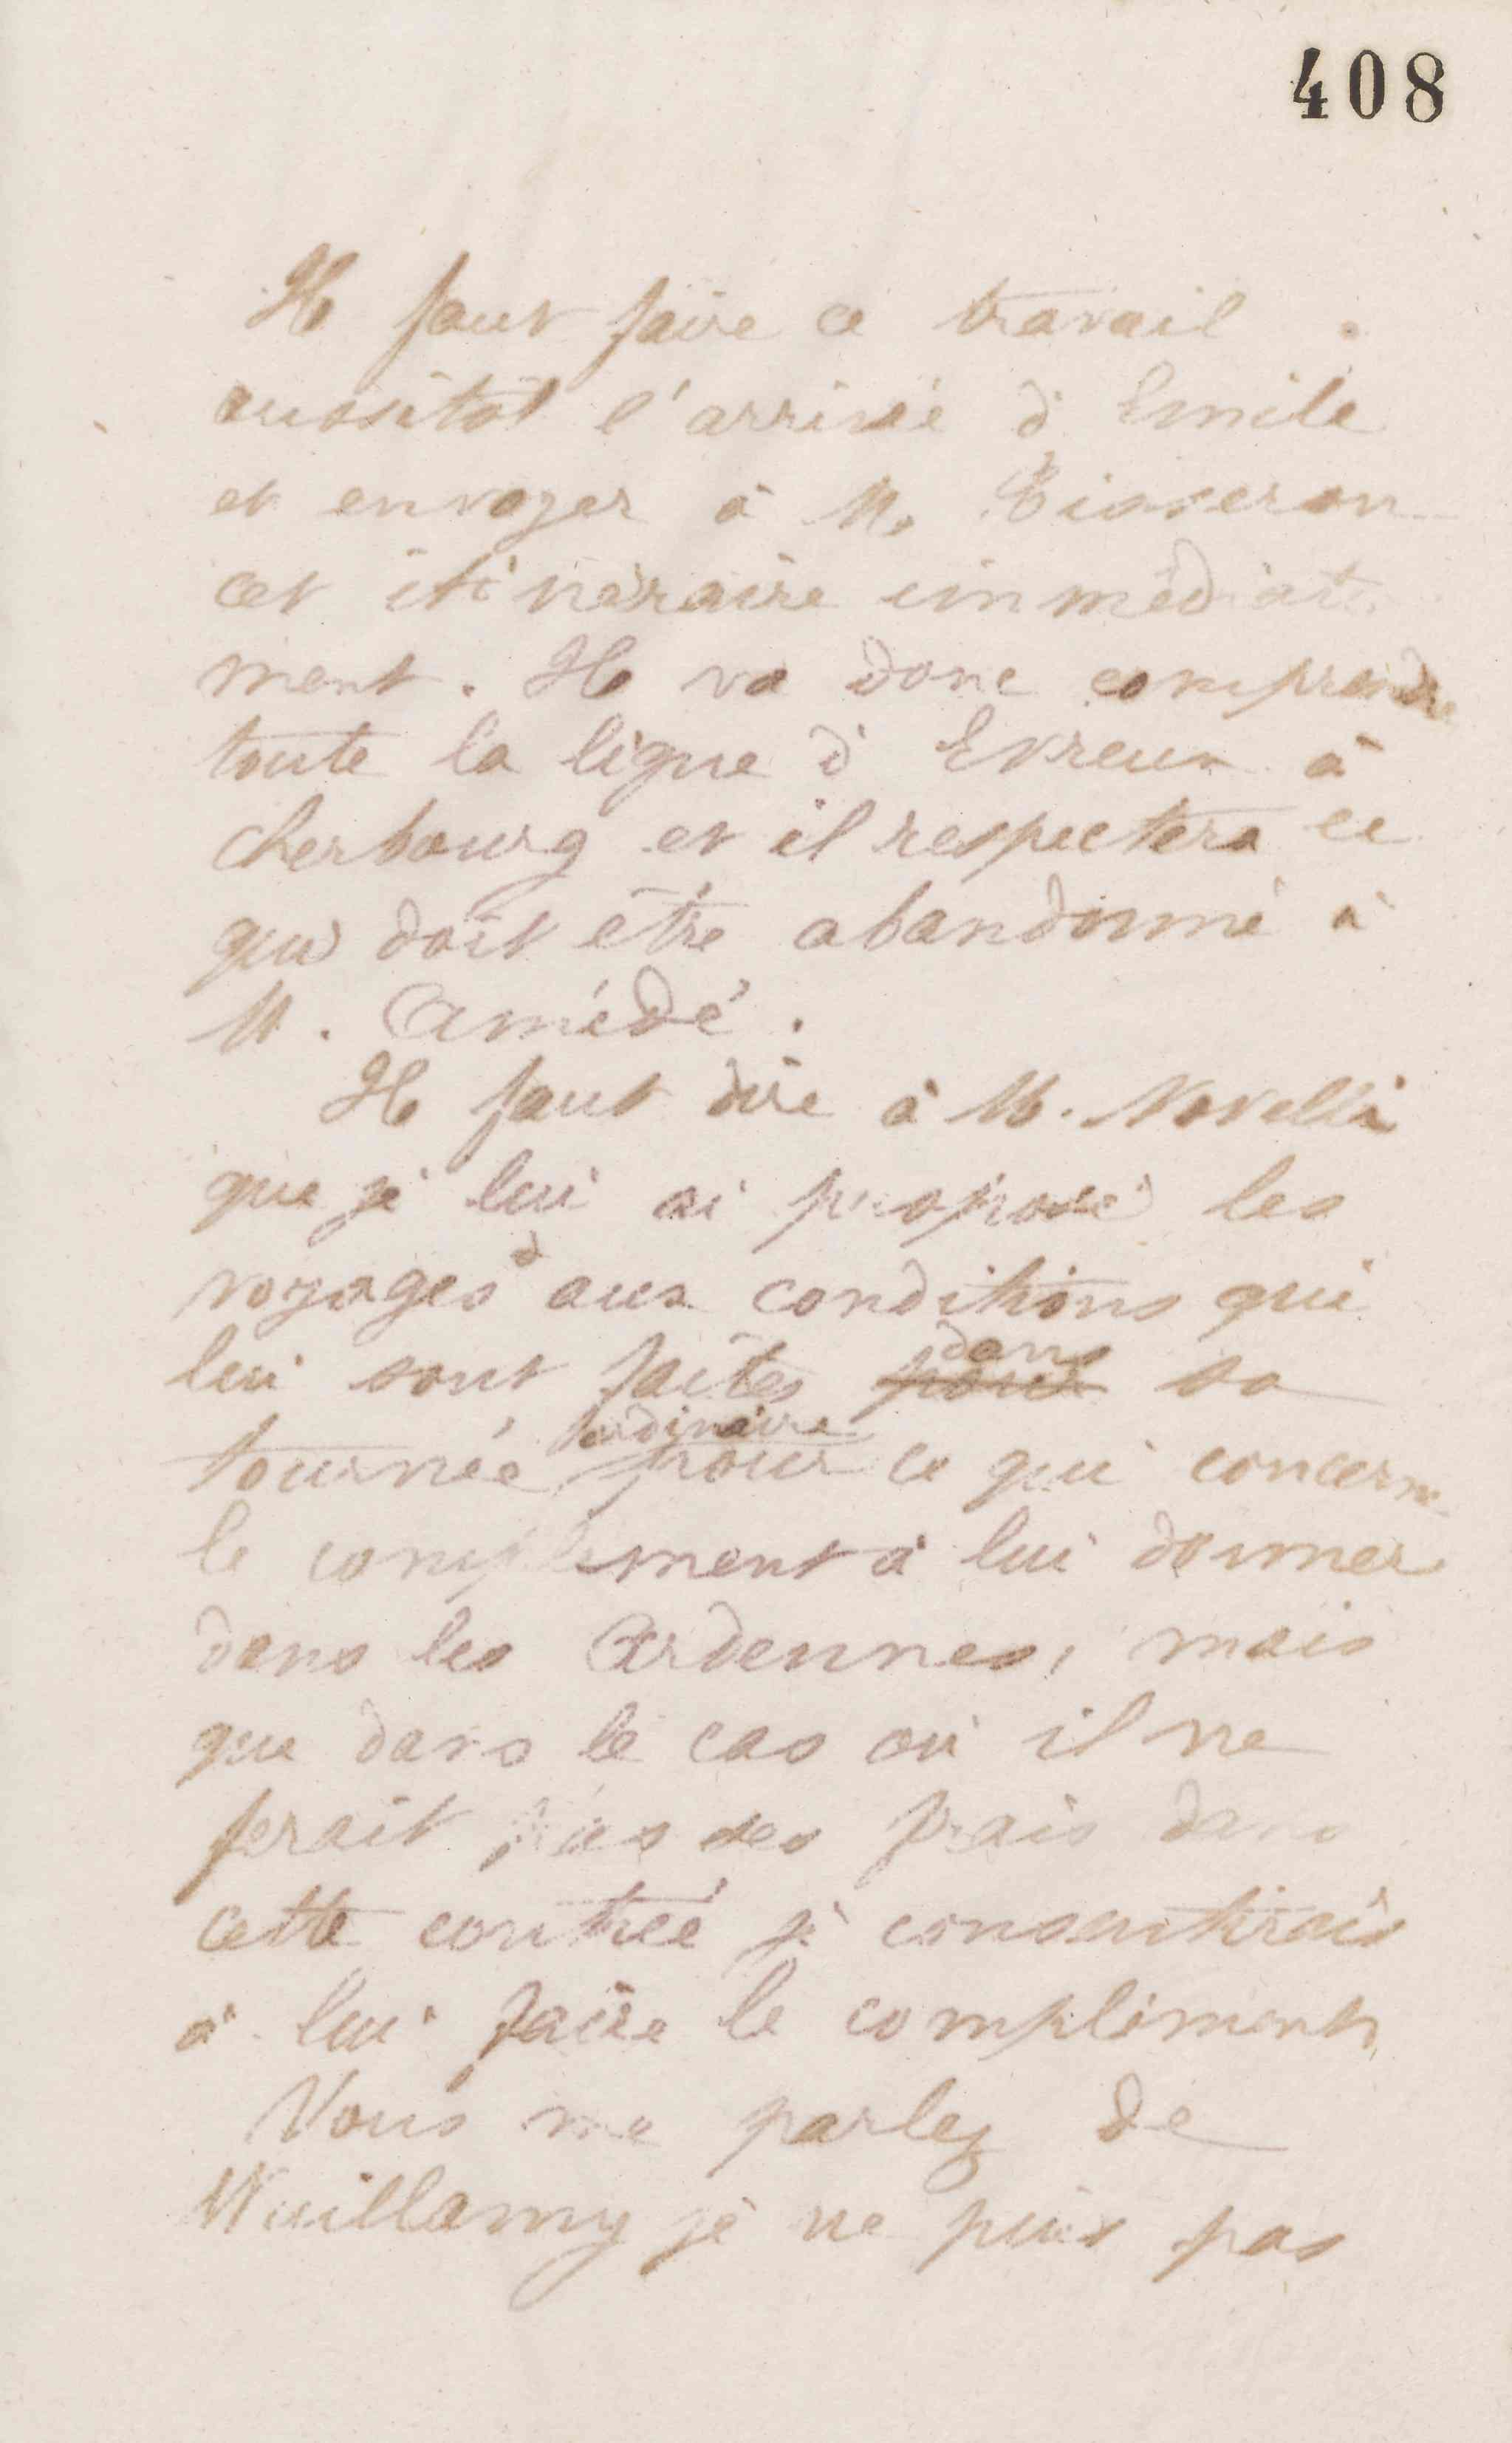 408
Il faut faire ce travail
aussitot l'arrivée d'Emile
et envoyer à M. Tisseron
cet itinéraire immédiate
ment. Il va donc comprendre
toute la ligne d'Evreux à
Cherbourg et il respectera ce
qui doit être abandonné à
M. Amédé.
Il faut dire à M. Novelli
que je lui ai proposé les
voyages aux conditions qui
lui sont faites pour dans sa
tournée ordinaire pour ce qui concerne
le complément à lui donner
dans les Ardennes, mais
que dans le cas où il ne
ferait pas ses frais dans
cette contrée je consentirais
à lui faire le compliment
Vous me parlez de
Wuillamy je ne puis pas